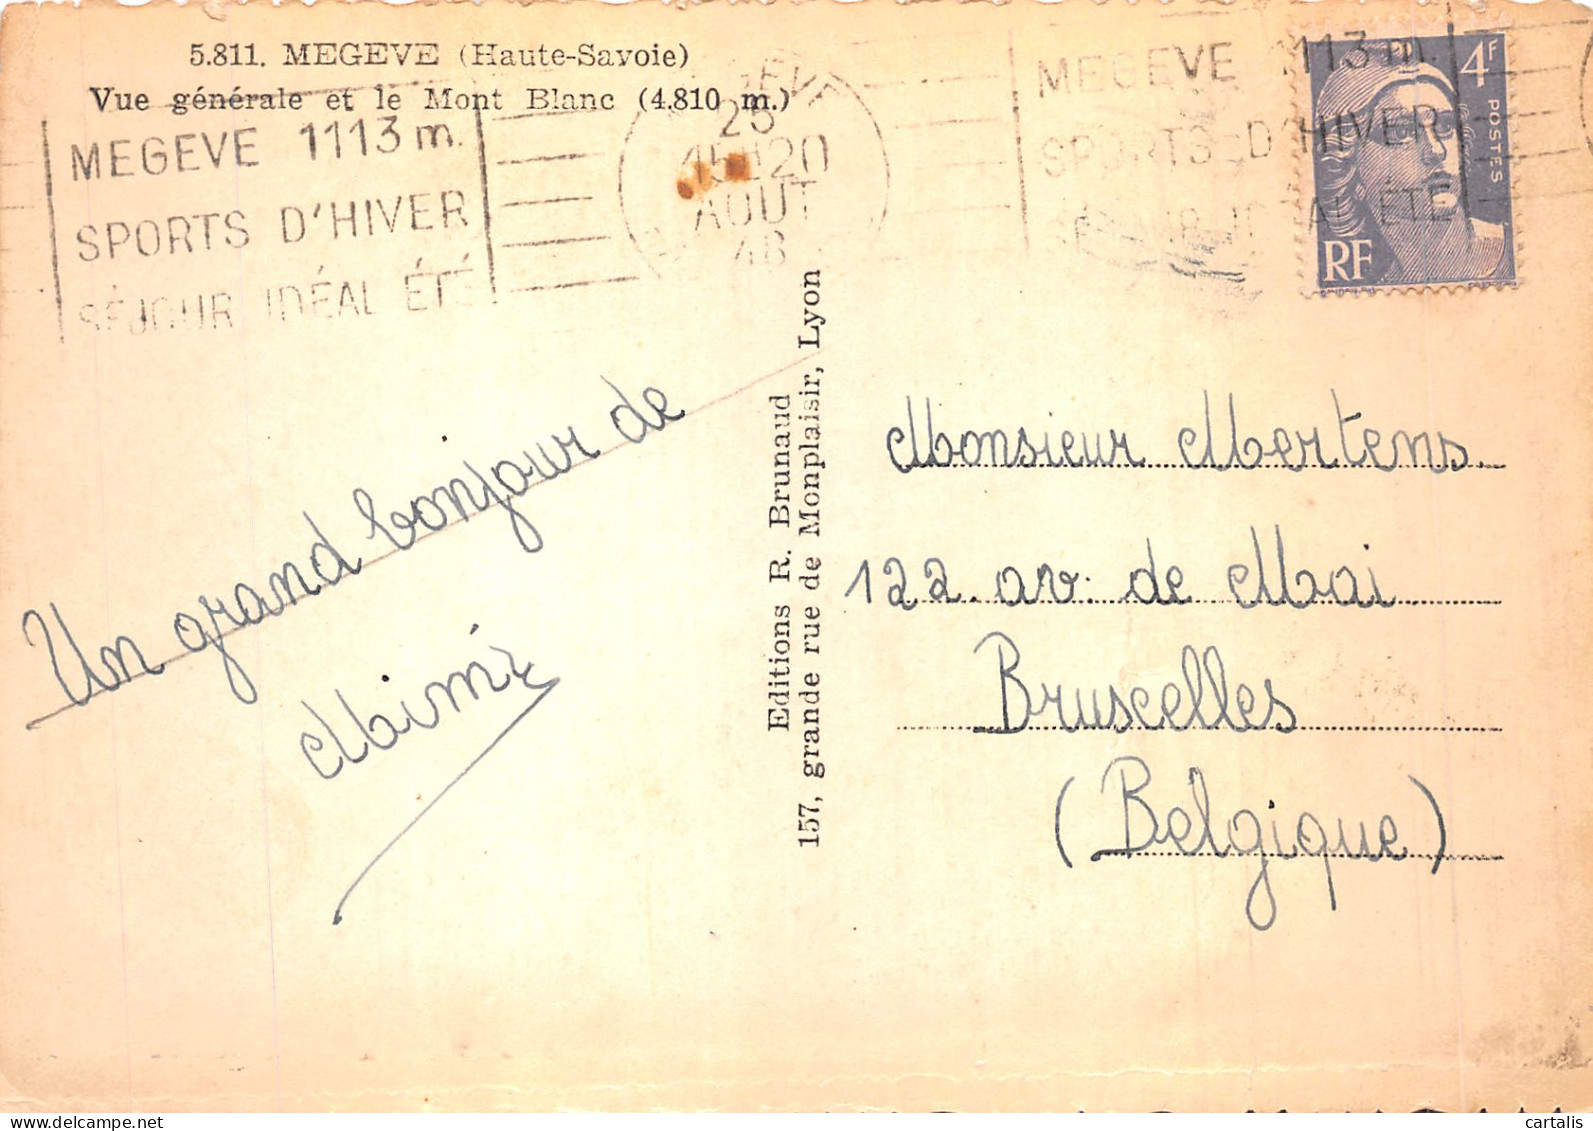 5.811. MEGEVE (Haute-Savoie)
Vue générale et le Mont Blanc (4.810 m.)
MEGEVE 1113 m.
SPORTS D'HIVER
SÉJOUR IDÉAL ÉTÉ
25
15H20
AOUT
48
MEGEVE 1113 m.
SPORTS D'HIVER
ÉTÉ
4F
POSTES
RF
Un grand bonjour de
Mimi
Editions R. Brunaud
157, grande rue de Monplaisir, Lyon
Monsieur Mertens.
122 av. de Mai
Bruxelles
(Belgique)
delcampe.net
cartalis